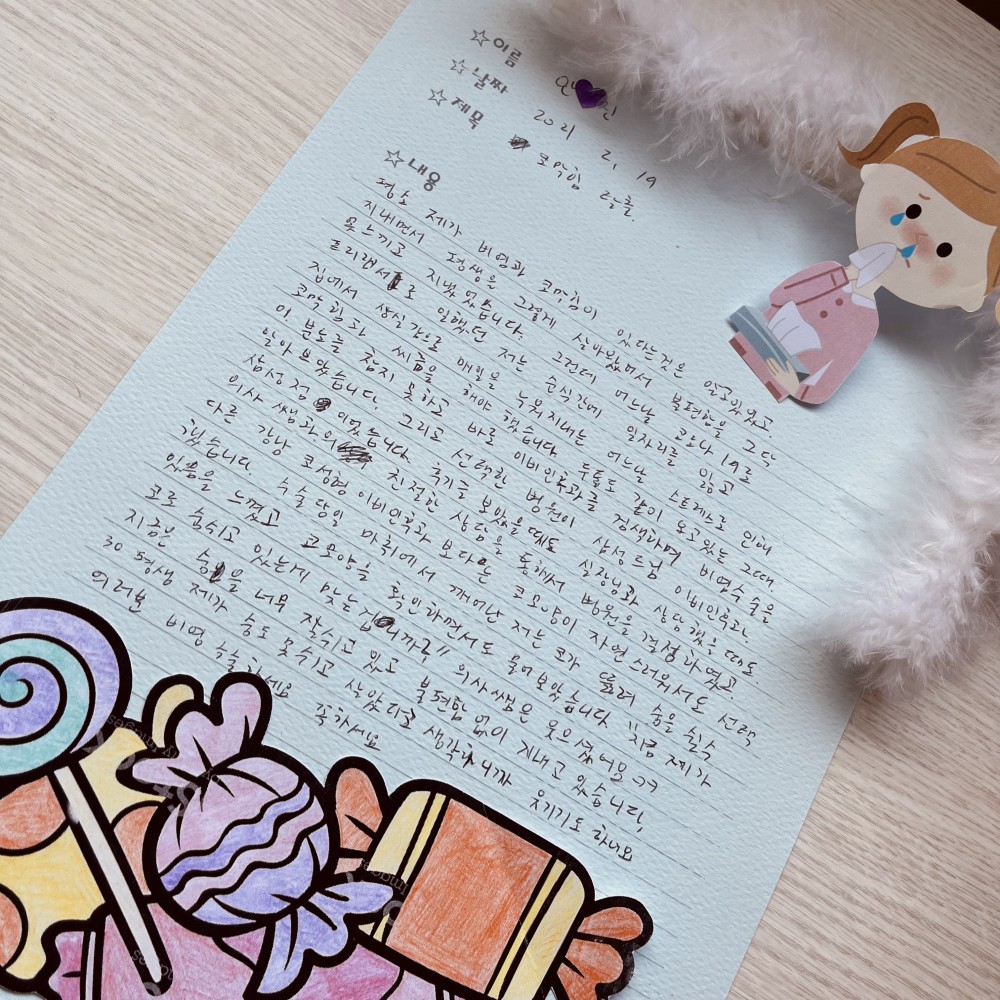 ☆이름
☆날짜 2021 2. 19
☆제목 코막힘 탈출.
☆내용
평소 제가 비염과 코막힘이 있다는것은 알고있었고.
지내면서 평생을 그렇게 살아왔어서 불편함을 그닥
못느끼고 지냈었습니다. 그런데 어느날 코로나 19로
프리랜서로 일했던 저는 순식간에 일자리를 잃고
집에서 상실감으로 매일을 누워지내는 어느날 스트레스로 인해
코막힘과 씨름을 해야했습니다 두통도 같이 오고있는 그때.
이 분노를 참지 못하고 바로 이비인후과를 검색하며 비염수술을
알아보았습니다. 그리고 선택한 병원이 삼성드림 이비인후과
삼성점 이었습니다 후기를 보았을때도 실장님과 상담했을때도
의사 쌤과의 친절한 상담을 통해서 병원을 결정하였고
다른 강남 코성형 이비인후과 보다는 코모양이 자연스러워서도 선택
했습니다. 수술당일 마취에서 깨어난 저는 코가 뚫려 숨을 쉴수
있음을 느꼈고 코모양을 확인하면서도 물어보았습니다 "지금 제가
코로 숨쉬고 있는게 맞는겁니까?" 의사쌤은 웃으셨어요 ㅋㅋ
지금은 숨을 너무 잘쉬고 있고 불편함 없이 지내고 있습니다,
30평생 제가 숨도 못쉬고 살았다고 생각하니까 웃기기도 하네요
여러분 비염 수술하세요 꼭하세요